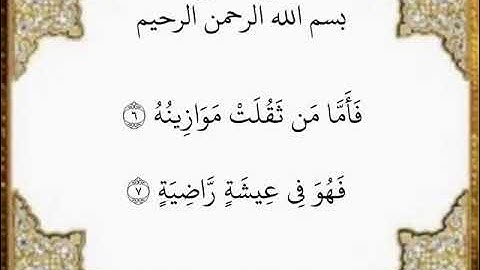 بسم الله الرحمن الرحيم
فَأَمَّا مَن ثَقُلَتْ مَوَازِينُهُ ۝٦
فَهُوَ فِى عِيشَةٍ رَّاضِيَةٍ ۝٧